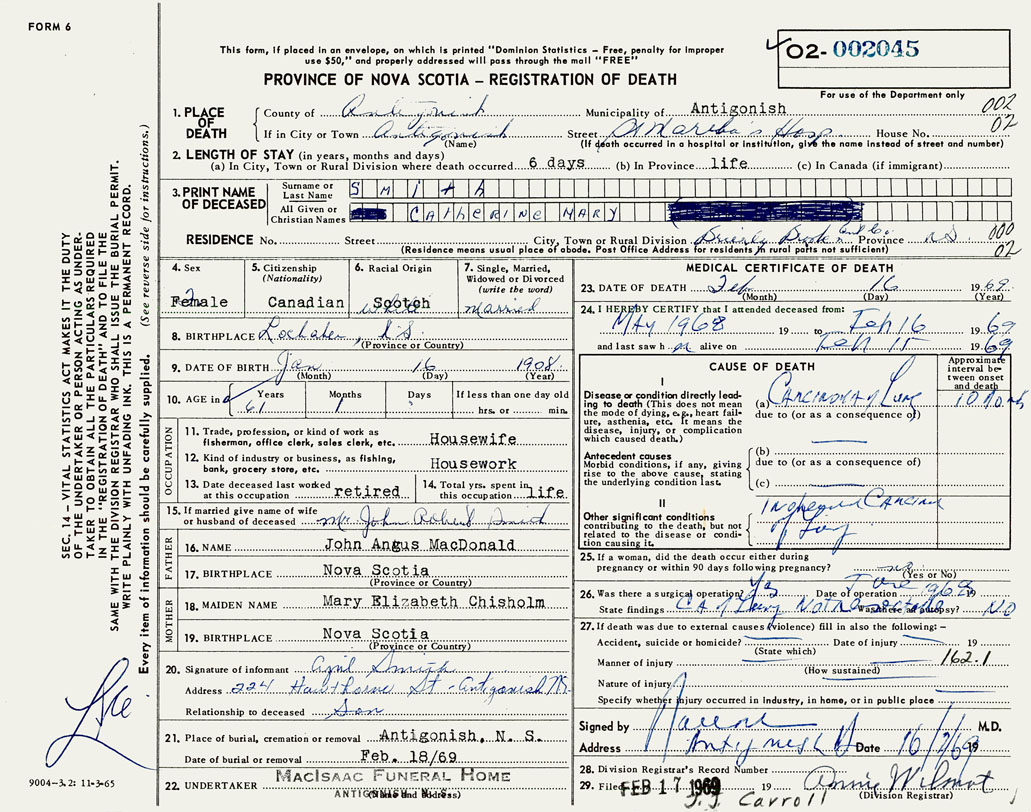 FORM 6
This form, if placed in an envelope, on which is printed "Dominion Statistics – Free, penalty for improper
use $50," and properly addressed will pass through the mail "FREE"
PROVINCE OF NOVA SCOTIA – REGISTRATION OF DEATH
O2- 002045
For use of the Department only
1. PLACE OF DEATH
County of Antigonish Municipality of Antigonish 002
If in City or Town Antigonish Street St Martha's Hosp House No. 02
(Name) (If death occurred in a hospital or institution, give the name instead of street and number)
2. LENGTH OF STAY (in years, months and days)
(a) In City, Town or Rural Division where death occurred 6 days (b) In Province life (c) In Canada (if immigrant)
3. PRINT NAME OF DECEASED
Surname or Last Name Smith
All Given or Christian Names CATHERINE MARY
RESIDENCE No. Street City, Town or Rural Division Brierly Brook Province NS 000
(Residence means usual place of abode. Post Office Address for residents in rural parts not sufficient) 02
4. Sex Female
5. Citizenship (Nationality) Canadian
6. Racial Origin Scotch white
7. Single, Married, Widowed or Divorced (write the word) married
8. BIRTHPLACE Lochaber, N.S.
(Province or Country)
9. DATE OF BIRTH Jan 16 1908
(Month) (Day) (Year)
10. AGE in Years 61 Months 1 Days If less than one day old hrs. or min.
OCCUPATION
11. Trade, profession, or kind of work as fisherman, office clerk, sales clerk, etc. Housewife
12. Kind of industry or business, as fishing, bank, grocery store, etc. Housework
13. Date deceased last worked at this occupation retired
14. Total yrs. spent in this occupation life
15. If married give name of wife or husband of deceased Mr. John Robert Smith
FATHER
16. NAME John Angus MacDonald
17. BIRTHPLACE Nova Scotia
(Province or Country)
MOTHER
18. MAIDEN NAME Mary Elizabeth Chisholm
19. BIRTHPLACE Nova Scotia
(Province or Country)
20. Signature of informant Smith
Address 224 Hawthorne St - Antigonish NS
Relationship to deceased Son
21. Place of burial, cremation or removal Antigonish, N. S.
Date of burial or removal Feb. 18/69
22. UNDERTAKER MacIsaac Funeral Home
ANTIGONISH, N. S.
(Name and Address)
MEDICAL CERTIFICATE OF DEATH
23. DATE OF DEATH Feb 16 1969
(Month) (Day) (Year)
24. I HEREBY CERTIFY that I attended deceased from
May 1968 19 to Feb 16 1969
and last saw h er alive on Feb 15 1969
CAUSE OF DEATH
Approximate interval between onset and death
I
Disease or condition directly leading to death (This does not mean the mode of dying, e.g., heart failure, asthenia, etc. It means the disease, injury, or complication which caused death.)
(a) Carcinoma of Lung 10 mos
due to (or as a consequence of)
Antecedent causes
Morbid conditions, if any, giving rise to the above cause, stating the underlying condition last.
(b)
due to (or as a consequence of)
(c)
II
Other significant conditions contributing to the death, but not related to the disease or condition causing it.
Carcinoma
of Lung
25. If a woman, did the death occur either during pregnancy or within 90 days following pregnancy? no
(Yes or No)
26. Was there a surgical operation? Yes Date of operation June 1968 19
State findings CA of Lung Not Resectable Was there an autopsy? NO
27. If death was due to external causes (violence) fill in also the following: –
Accident, suicide or homicide? Date of injury 19
(State which)
Manner of injury 162.1
(How sustained)
Nature of injury
Specify whether injury occurred in Industry, in home, or in public place
Signed by M.D.
Address Antigonish Date 16/2/69 19
28. Division Registrar's Record Number
29. Filed FEB 17 1969 19 Annie Wilmot
(Division Registrar)
J.J. Carroll
SEC. 14 – VITAL STATISTICS ACT MAKES IT THE DUTY
OF THE UNDERTAKER OR PERSON ACTING AS UNDER-
TAKER TO OBTAIN ALL THE PARTICULARS REQUIRED
IN THE "REGISTRATION OF DEATH" AND TO FILE THE
SAME WITH THE DIVISION REGISTRAR WHO SHALL ISSUE THE BURIAL PERMIT.
WRITE PLAINLY WITH UNFADING INK. THIS IS A PERMANENT RECORD.
Every item of information should be carefully supplied. (See reverse side for instructions.)
9004-3.2: 11-3-65